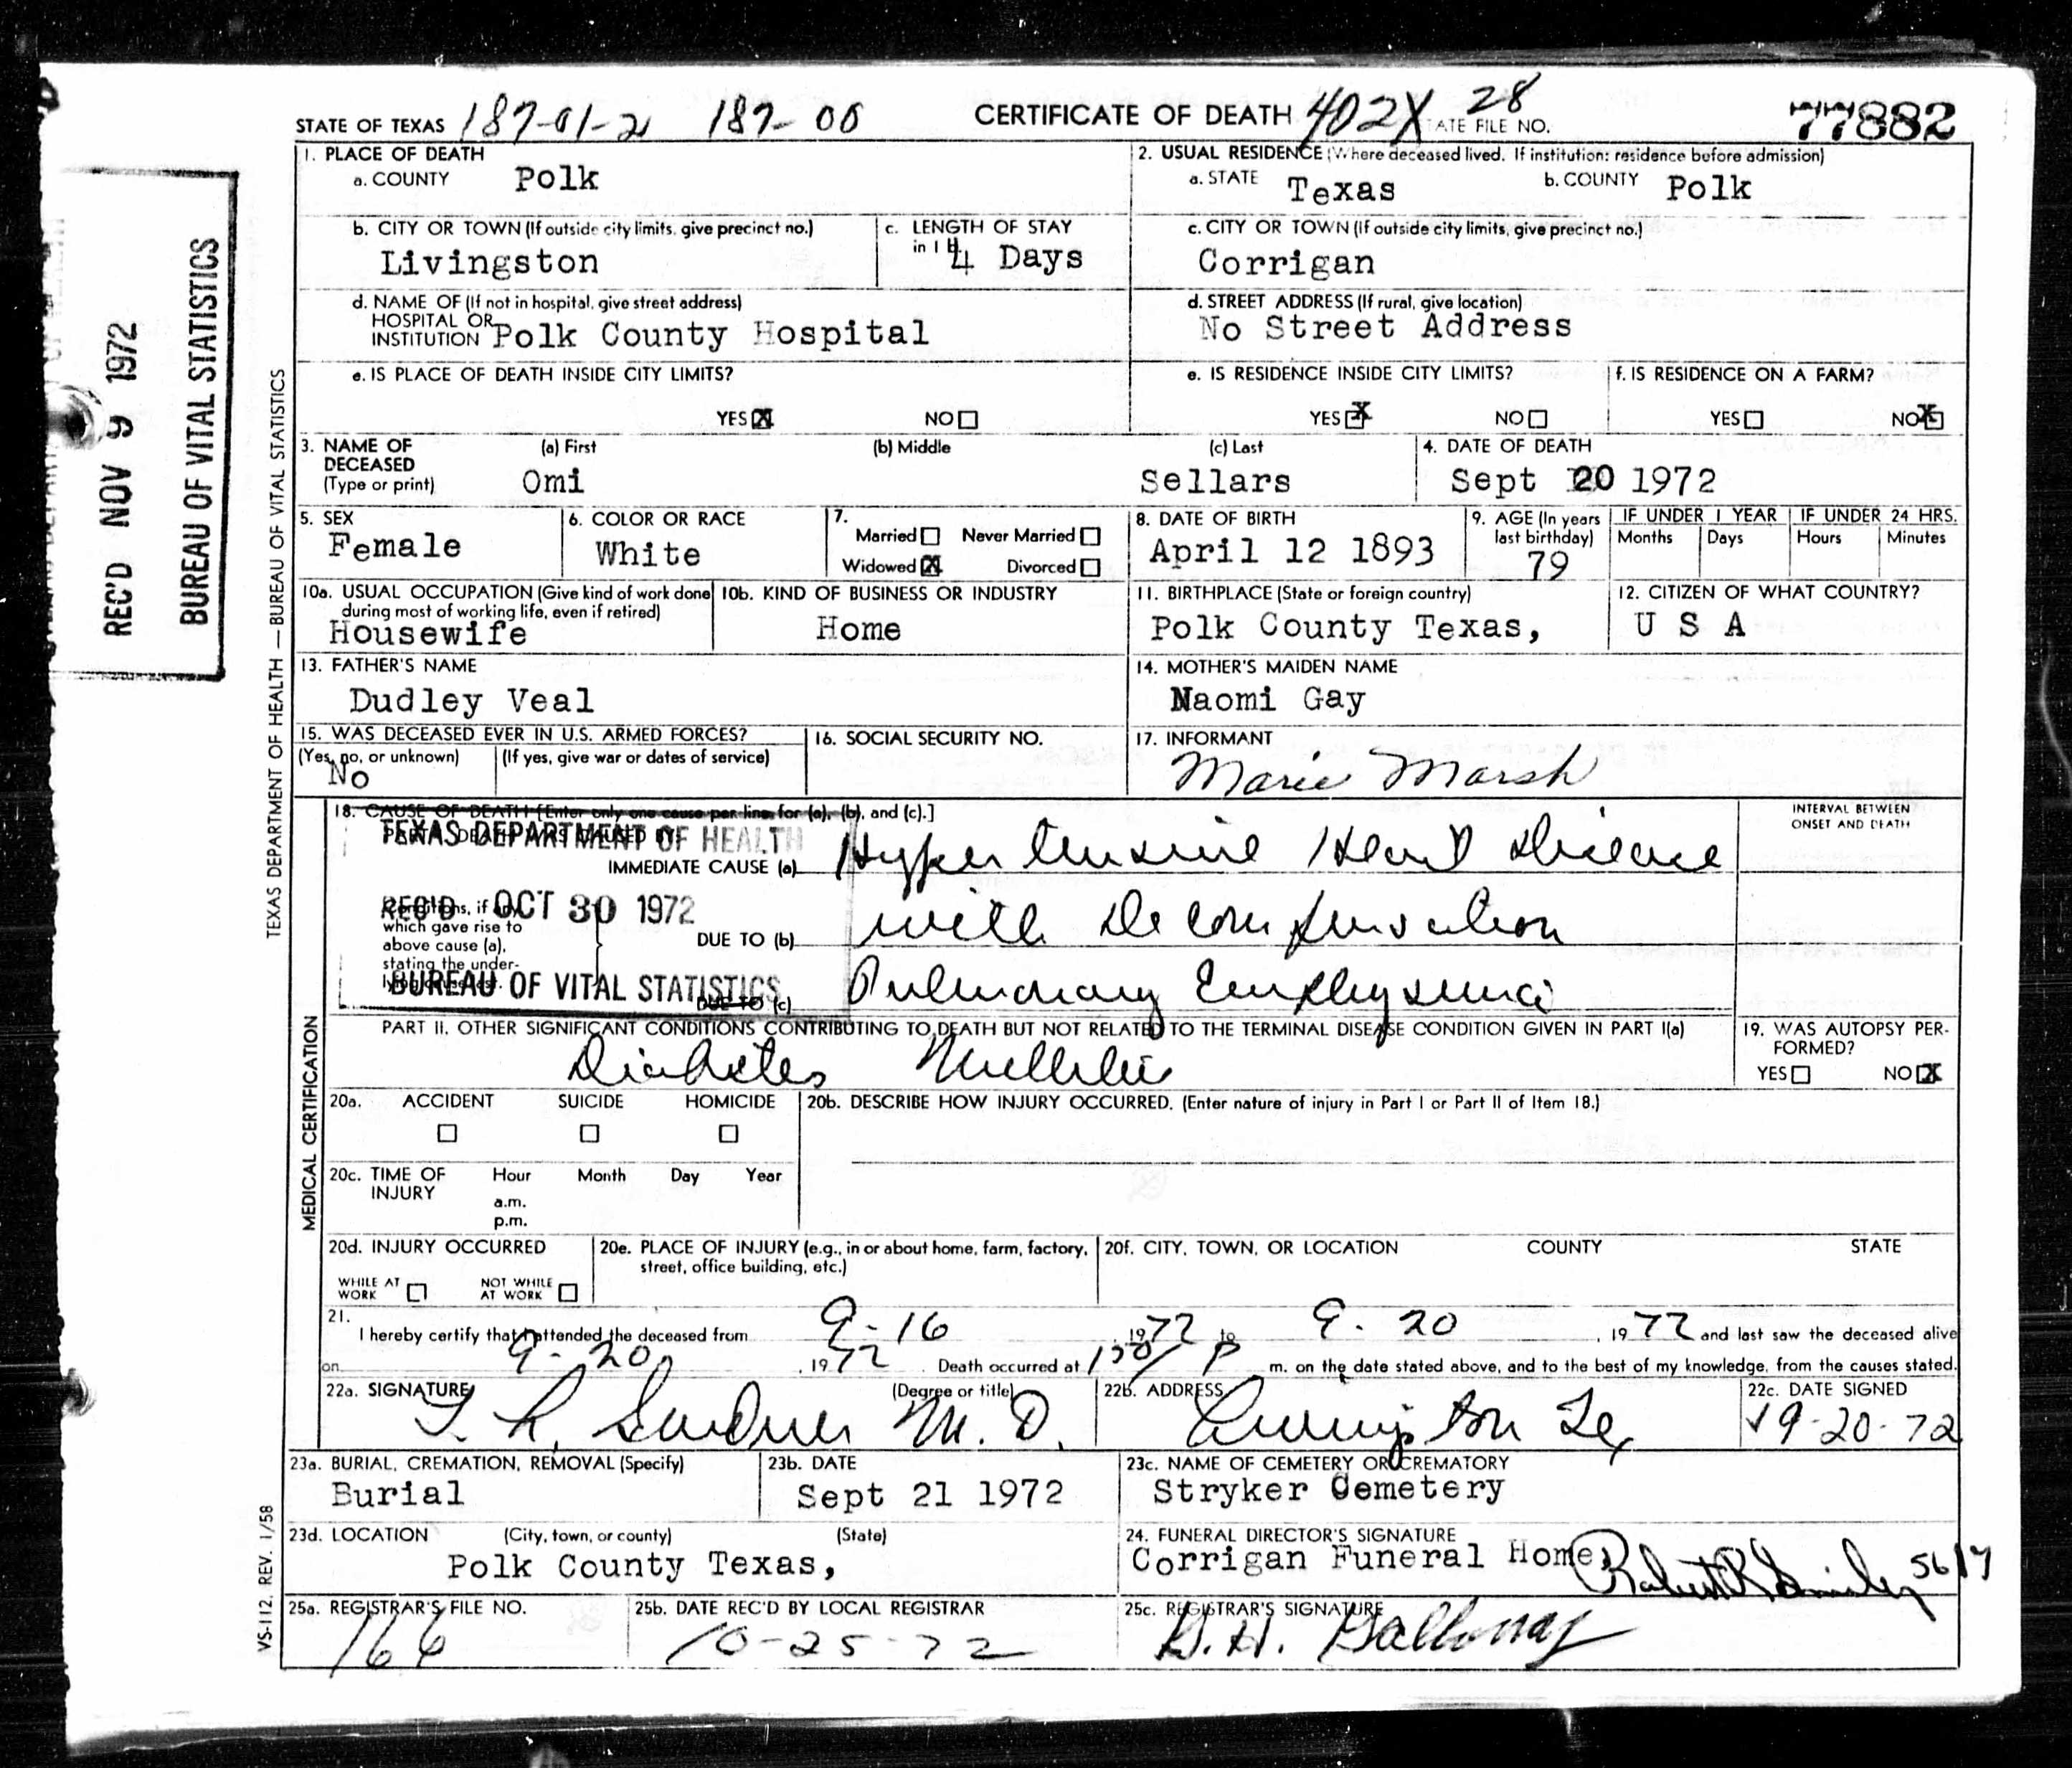 STATE OF TEXAS 187-01-2 187-00 CERTIFICATE OF DEATH 402X 28 ATE FILE NO. 77882
REC'D NOV 9 1972
BUREAU OF VITAL STATISTICS
TEXAS DEPARTMENT OF HEALTH — BUREAU OF VITAL STATISTICS
1. PLACE OF DEATH
a. COUNTY Polk
2. USUAL RESIDENCE (Where deceased lived. If institution: residence before admission)
a. STATE Texas b. COUNTY Polk
b. CITY OR TOWN (If outside city limits, give precinct no.)
Livingston
c. LENGTH OF STAY
in 1 4 Days
c. CITY OR TOWN (If outside city limits, give precinct no.)
Corrigan
d. NAME OF (If not in hospital, give street address)
HOSPITAL OR
INSTITUTION Polk County Hospital
d. STREET ADDRESS (If rural, give location)
No Street Address
e. IS PLACE OF DEATH INSIDE CITY LIMITS?
YES X NO
e. IS RESIDENCE INSIDE CITY LIMITS?
YES X NO
f. IS RESIDENCE ON A FARM?
YES NO X
3. NAME OF (a) First (b) Middle (c) Last
DECEASED
(Type or print) Omi Sellars
4. DATE OF DEATH
Sept 20 1972
5. SEX
Female
6. COLOR OR RACE
White
7.
Married Never Married
Widowed X Divorced
8. DATE OF BIRTH
April 12 1893
9. AGE (In years
last birthday)
79
IF UNDER 1 YEAR IF UNDER 24 HRS.
Months Days Hours Minutes
10a. USUAL OCCUPATION (Give kind of work done
during most of working life, even if retired)
Housewife
10b. KIND OF BUSINESS OR INDUSTRY
Home
11. BIRTHPLACE (State or foreign country)
Polk County Texas,
12. CITIZEN OF WHAT COUNTRY?
U S A
13. FATHER'S NAME
Dudley Veal
14. MOTHER'S MAIDEN NAME
Naomi Gay
15. WAS DECEASED EVER IN U.S. ARMED FORCES?
(Yes, no, or unknown) (If yes, give war or dates of service)
No
16. SOCIAL SECURITY NO.
17. INFORMANT
Marie Marsh
MEDICAL CERTIFICATION
18. CAUSE OF DEATH [Enter only one cause per line for (a), (b), and (c).]
INTERVAL BETWEEN
ONSET AND DEATH
TEXAS DEPARTMENT OF HEALTH
IMMEDIATE CAUSE (a) Hypertensive Heart Disease
REC'D OCT 30 1972
which gave rise to
above cause (a),
stating the under-
DUE TO (b) with Decompensation
BUREAU OF VITAL STATISTICS
DUE TO (c) Pulmonary Emphysema
PART II. OTHER SIGNIFICANT CONDITIONS CONTRIBUTING TO DEATH BUT NOT RELATED TO THE TERMINAL DISEASE CONDITION GIVEN IN PART I(a)
Diabetes Mellitus
19. WAS AUTOPSY PER-
FORMED?
YES NO X
20a. ACCIDENT SUICIDE HOMICIDE
20b. DESCRIBE HOW INJURY OCCURRED. (Enter nature of injury in Part I or Part II of Item 18.)
20c. TIME OF Hour Month Day Year
INJURY
a.m.
p.m.
20d. INJURY OCCURRED
WHILE AT NOT WHILE
WORK AT WORK
20e. PLACE OF INJURY (e.g., in or about home, farm, factory,
street, office building, etc.)
20f. CITY, TOWN, OR LOCATION COUNTY STATE
21.
I hereby certify that I attended the deceased from 9-16, 1972 to 9-20, 1972 and last saw the deceased alive
on 9-20, 1972. Death occurred at 150/ P m. on the date stated above, and to the best of my knowledge, from the causes stated.
22a. SIGNATURE (Degree or title)
M. D.
22b. ADDRESS
Livingston Tex
22c. DATE SIGNED
9-20-72
23a. BURIAL, CREMATION, REMOVAL (Specify)
Burial
23b. DATE
Sept 21 1972
23c. NAME OF CEMETERY OR CREMATORY
Stryker Cemetery
23d. LOCATION (City, town, or county) (State)
Polk County Texas,
24. FUNERAL DIRECTOR'S SIGNATURE
Corrigan Funeral Home, 5617
25a. REGISTRAR'S FILE NO.
166
25b. DATE REC'D BY LOCAL REGISTRAR
10-25-72
25c. REGISTRAR'S SIGNATURE
Galloway
VS-112, REV. 1/58